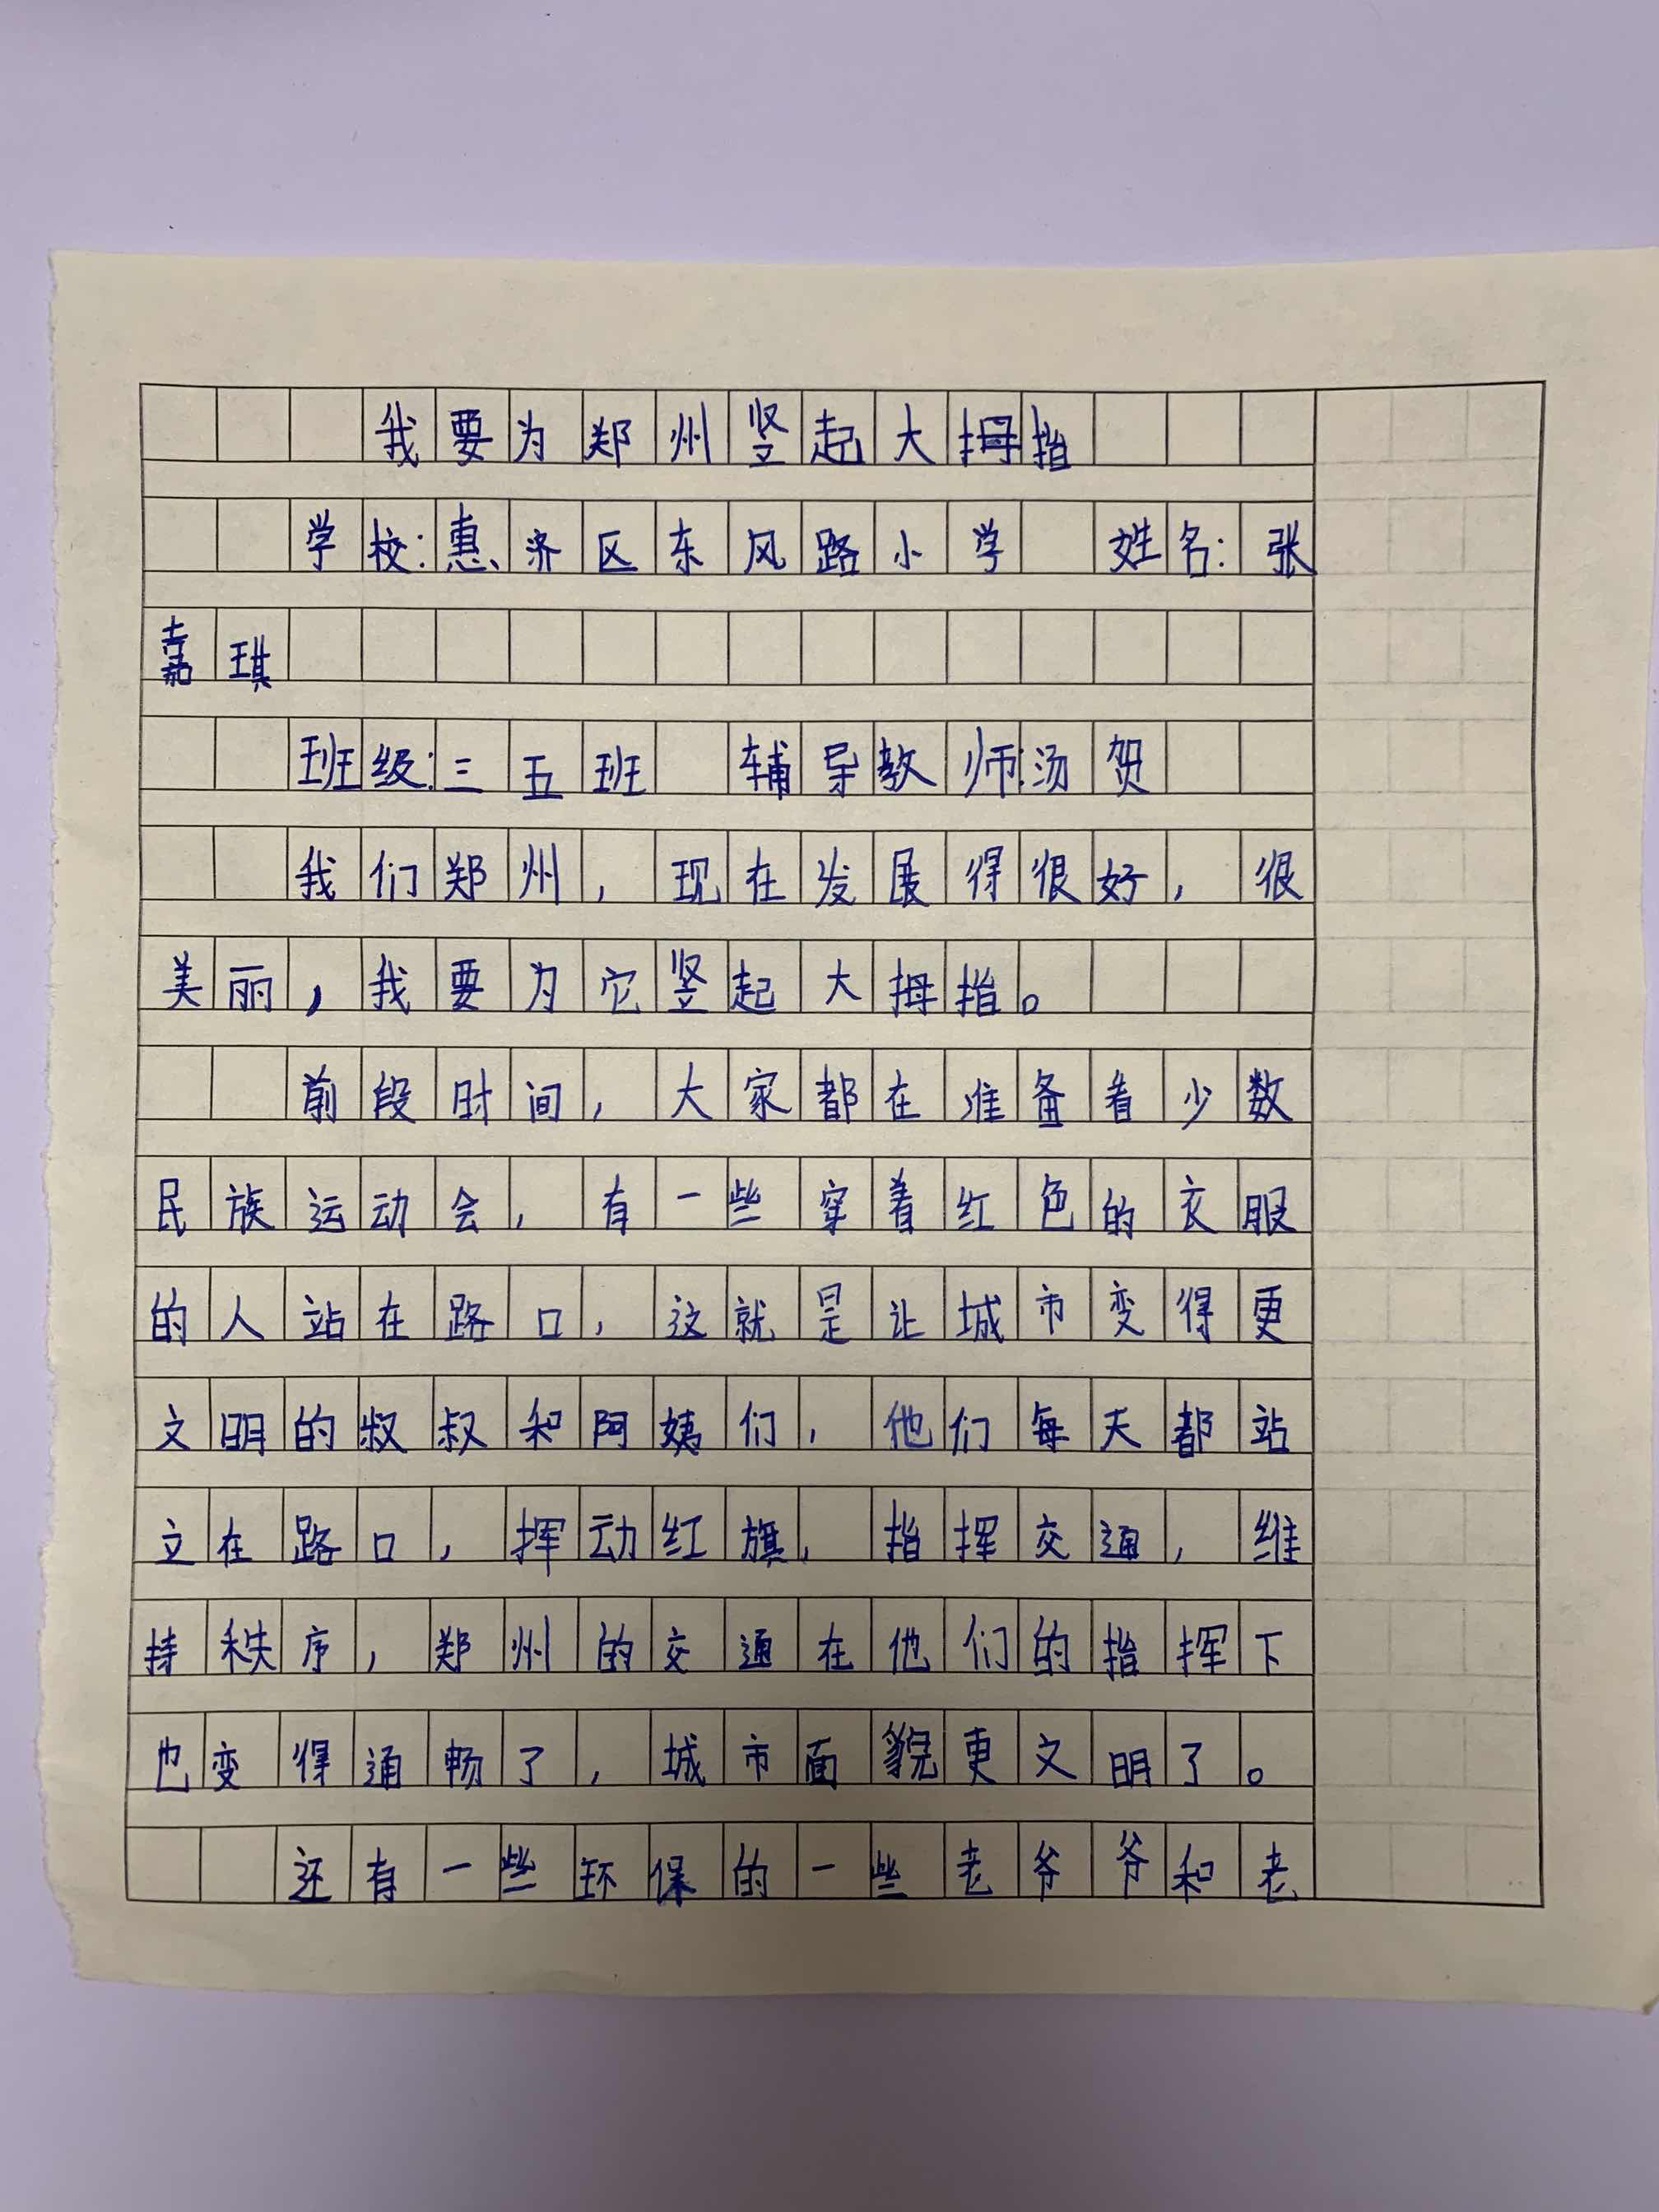 我要为郑州竖起大拇指
学校:惠济区东风路小学 姓名:张
嘉琪
班级:三五班 辅导教师:汤贺
我们郑州,现在发展得很好,很
美丽,我要为它竖起大拇指。
前段时间,大家都在准备着少数
民族运动会,有一些穿着红色的衣服
的人站在路口,这就是让城市变得更
文明的叔叔和阿姨们,他们每天都站
立在路口,挥动红旗,指挥交通,维
持秩序,郑州的交通在他们的指挥下
也变得通畅了,城市面貌更文明了。
还有一些环保的一些老爷爷和老